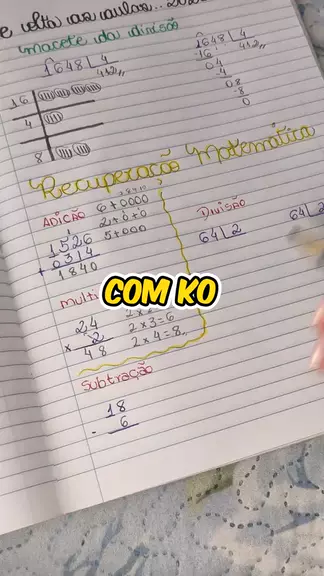 e volta às aulas... 202
macete da divisão
1648 | 4
412,,
1648 | 4
16 412,,
04
- 4
08
- 8
0
16
4
8
Recuperação Matemática
ADIÇÃO
6+0000
2+0+0
5+000
1
1526
+ 0314
1840
DIVISÃO
64 | 2
64 | 2
COM KO
Multi
24
x 2
48
2 x 3 = 6
2 x 4 = 8,,
Subtração
18
- 6